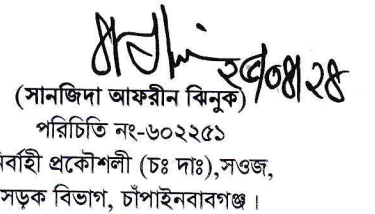 ২৫/০৪/২৪
(সানজিদা আফরীন ঝিনুক)
পরিচিতি নং-৬০২২৫১
র্বাহী প্রকৌশলী (চঃ দাঃ),সওজ,
সড়ক বিভাগ, চাঁপাইনবাবগঞ্জ।